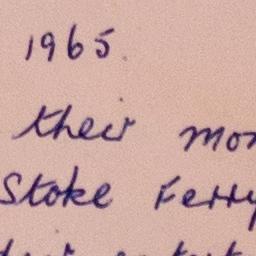 1965.
their mon
Stoke Ferry